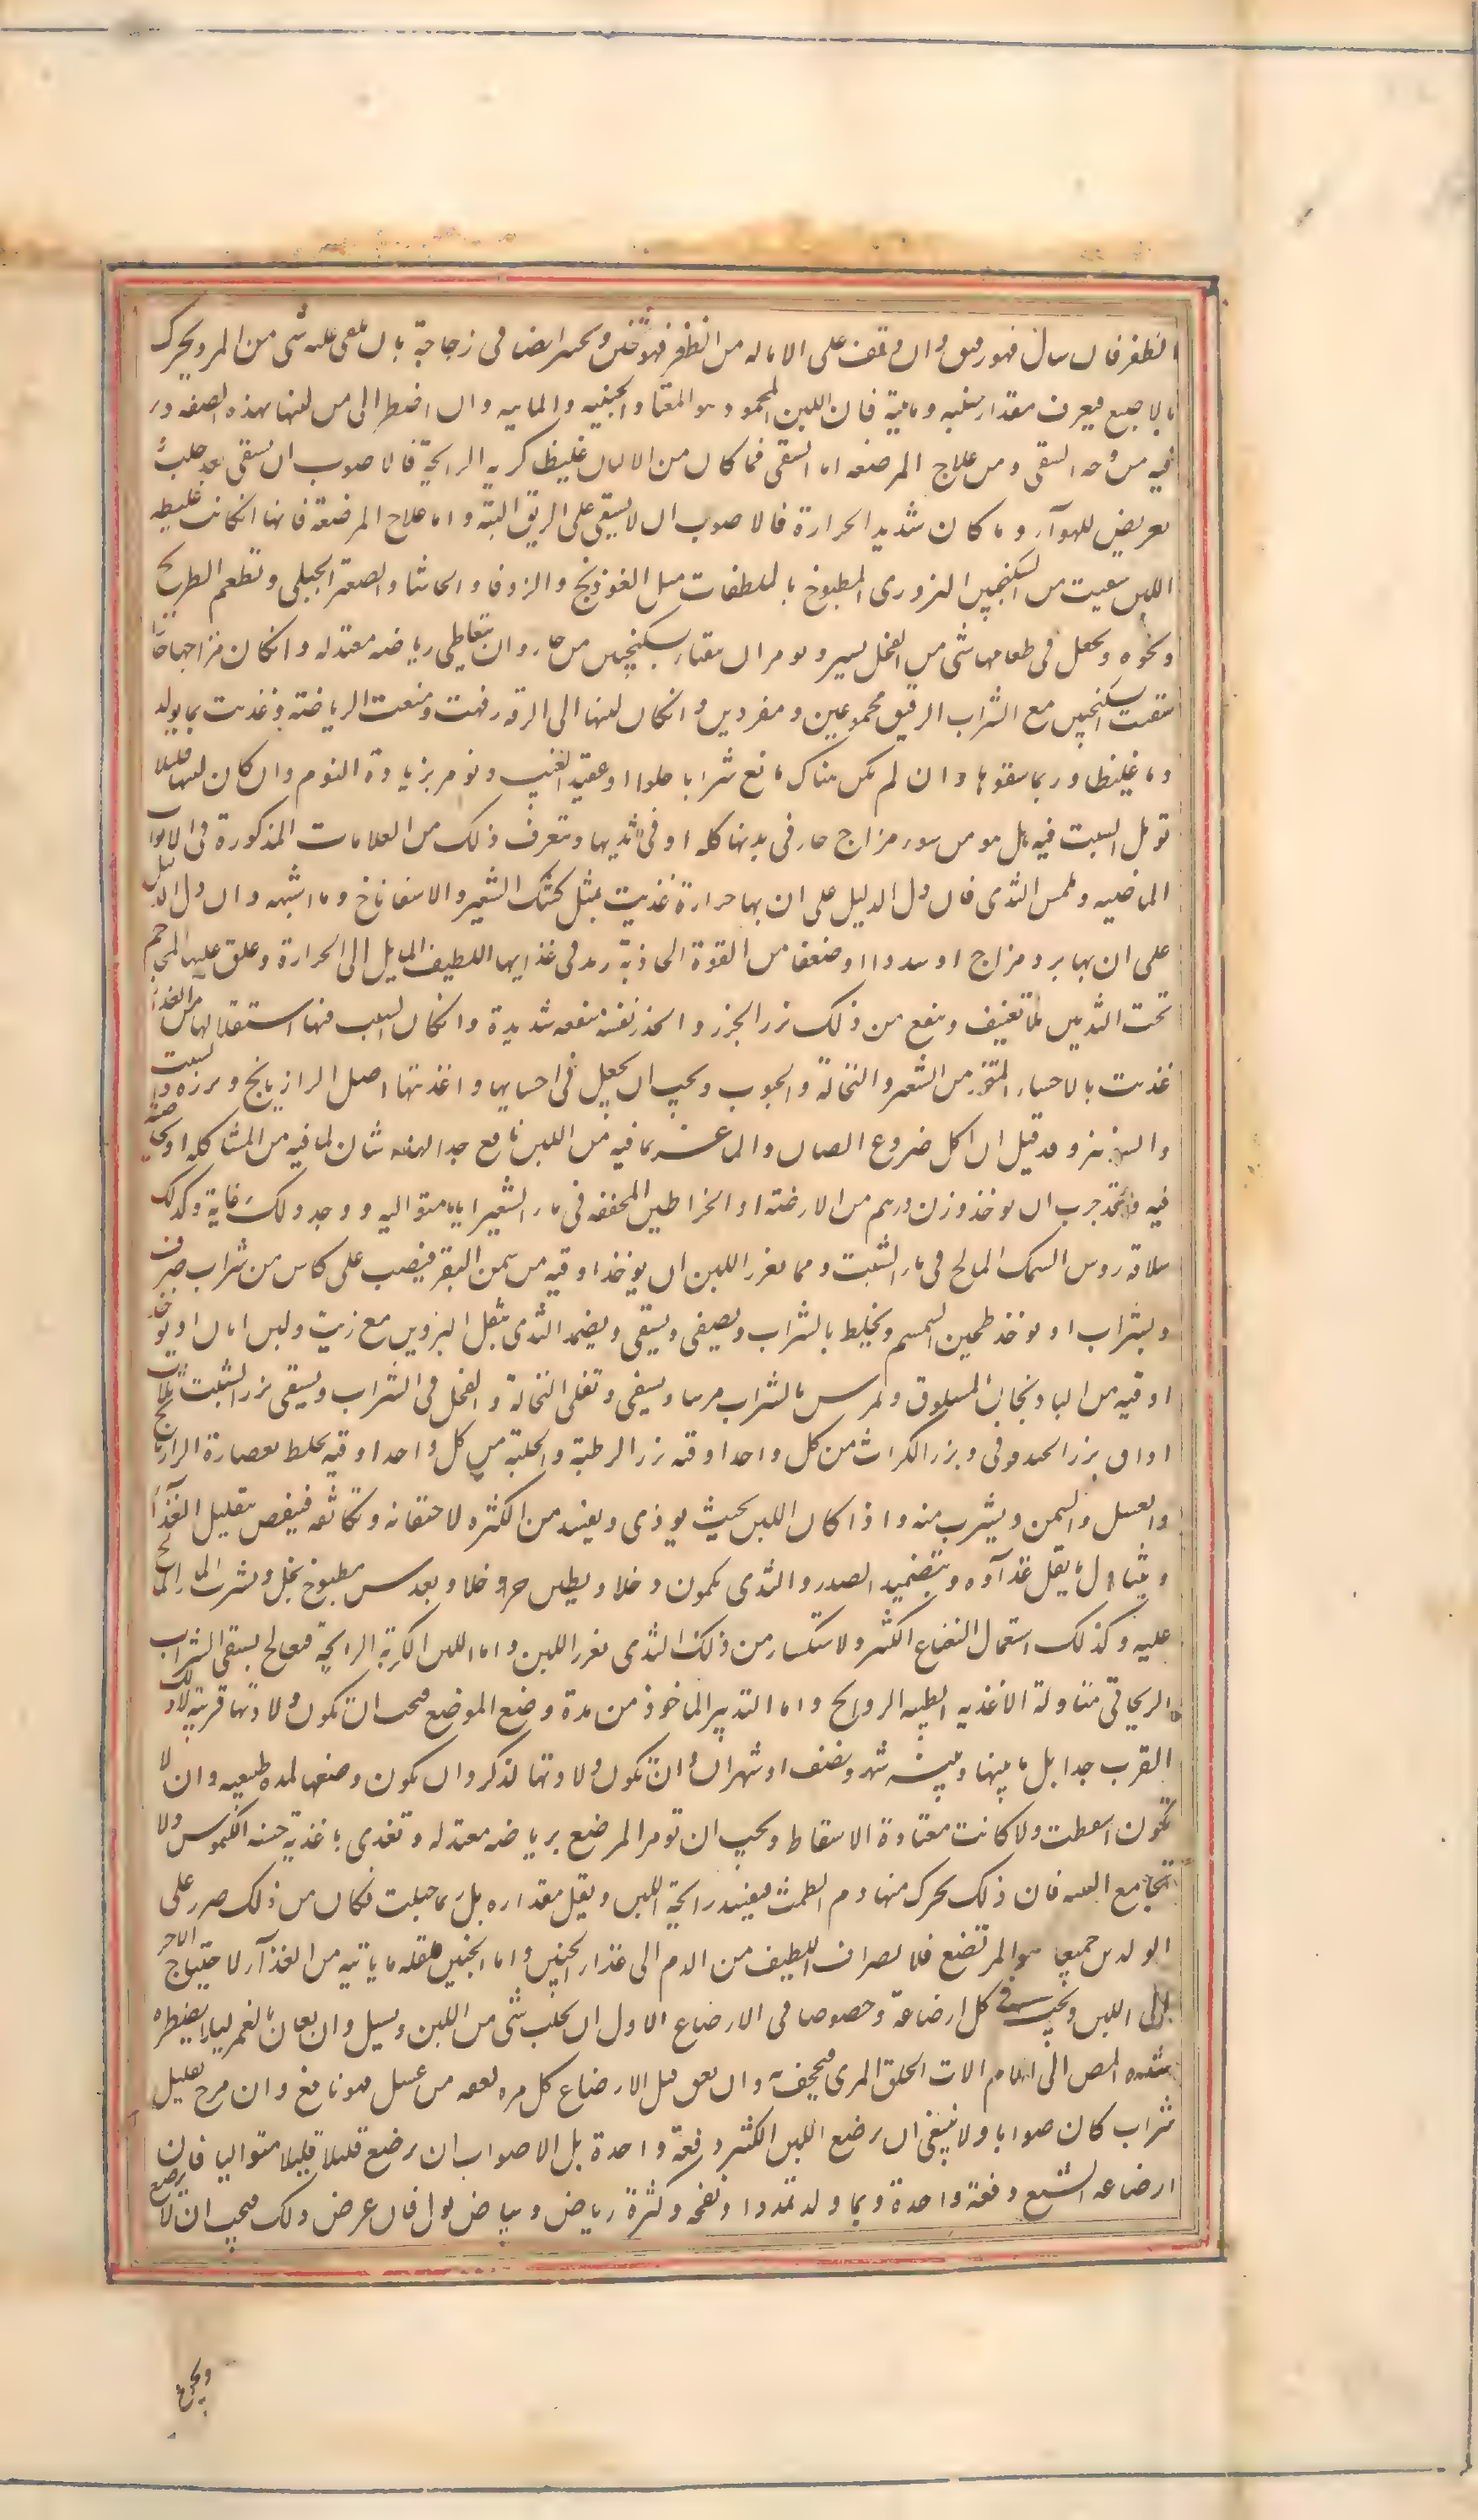 الظفر فان سال فهو رقيق وان وقف على الامالة من الظفر فهو ثخين ويجبر ايضا فى زجاجة بان يلقى عليه شى من المر ويحرك
بالاصبع فيعرف مقدار جبنيه ومائية فان اللبن المحمود هو المتعادل الجبنيه والمائيه وان اضطر الى من لبنها بهذه الصفه در
فيه من وجه السقى ومن علاج المرضعه اما السقى فما كان من الالبان غليظا كريه الرايحة فالاصوب ان يسقى بعد حلب
تعريض للهوآء وما كان شديد الحرارة فالاصوب ان لا يسقى على الريق البتة واما علاج المرضعة فانها ان كانت غليظه
اللبن سقيت من السكنجبين البزورى المطبوخ بالملطفات مثل الفوذنج والزوفا والحاشا والصعتر الجبلى وتطعم الطريخ
ونحوه ويجعل فى طعامها شى من الفجل يسير وتومر ان تتقيا بسكنجبين حار وان تتعاطى رياضه معتدله وان كان مزاجها حارا
سقيت السكنجبين مع الشراب الرقيق مجموعين ومفردين وان كان لبنها الى الرقه رفهت ومنعت الرياضة وغذيت بما يولد
دما غليظا وربما سقوها وان لم يكن هناك مانع شرابا حلوا او عقيد العنب وتومر بزيادة النوم وان كان لبنها قليلا
تومل السبب فيه هل هو من سوء مزاج حار فى بدنها كله او فى ثديها وتتعرف ذلك من العلامات المذكورة فى الابواب
الماضيه ولمس الثدى فان دل الدليل على ان بها حرارة غذيت بمثل كشك الشعير والاسفاناخ وما اشبهه وان دل الدليل
على ان بها برد مزاج او سددا او ضعفا من القوة الجاذبة زيد فى غذايها اللطيف المايل الى الحرارة وعلق عليها المحاجم
تحت الثديين بلا تعنيف وينفع من ذلك بزر الجزر والجزر نفسه منفعه شديدة وان كان السبب فيها استقلالها من الغذا
غذيت بالاحساء المتخذ من الشعير والنخالة والحبوب ويجب ان يجعل فى احسايها واغذيتها اصل الرازيانج وبزره والشبت
والشونيز وقد قيل ان اكل ضروع الضان والماعز بما فيه من اللبن نافع جدا لهذه شان لما فيه من المشاكله او لخاصية
فيه وقد جرب ان يوخذ وزن درهم من الارضة او الخراطين المجففه فى ماء الشعير اياما متواليه ووجد ذلك غاية وكذلك
سلاقه روس السمك المالح فى ماء الشبت ومما يغزر اللبن ان يوخذ اوقيه من سمن البقر فيصب على كاس من شراب صرف
ويشرب او يوخذ طحين السمسم ويخلط بالشراب ويصفى ويسقى ويضمد الثدى بثفل الناردين مع زيت ولبن اتان او يوخذ
اوقيه من الباذنجان المسلوق ويمرس بالشراب مرسا ويسقى وتغلى النخالة والفجل فى الشراب ويسقى بزر الشبت ثلاث
اواق بزر الحندقوقى وبزر الكراث من كل واحد اوقيه بزر الرطبة والحلبة من كل واحد اوقيه يخلط بعصارة الرازيانج
والعسل والسمن ويشرب منه واذا كان اللبن بحيث يوذى ويفسد من الكثره لاحتقانه وتكاثفه فينقص بتقليل الغذآ
وبتناول ما يقل غذآوه وبتضميد الصدر والثدى بكمون وخلا وبطين حر وخلا وبعدس مطبوخ بخل ويشرب الماء المالح
عليه وكذلك استعمال النعناع الكثير والاستكثار من ذلك الثدى يغزر اللبن واما اللبن الكرية الرايحة فيعالج بسقى الشراب
الريحانى ومناولة الاغذيه الطيبه الروايح واما التدبير الماخوذ من مدة وضع المرضع فيجب ان تكون ولادتها قريبة لا ذلك
القرب جدا بل ما بينها وبينه شهر ونصف او شهران وان تكون ولادتها لذكر وان يكون وضعها لمدة طبيعيه وان لا
تكون اسقطت ولا كانت معتادة الاسقاط ويجب ان تومر المرضع برياضه معتدله وتغدى باغذية حسنه الكيموس ولا
تجامع البته فان ذلك يحرك منها دم الطمث فيفسد رايحة اللبن ويقل مقداره بل ربما حبلت فكان من ذلك ضرر على
الولدين جميعا اما المرتضع فلانصراف اللطيف من الدم الى غذاء الجنين واما الجنين فلقله ما ياتيه من الغذآء لاحتياج الاخر
الى اللبن ويجب فى كل ارضاعة وخصوصا فى الارضاع الاول ان يحلب شى من اللبن ويسيل وان يعان بالغمز ليلا يضطره
شده المص الى ايلام الات الحلق والمرى فيجحف به وان لعق قبل الارضاع كل مره ملعقه من عسل فهو نافع وان مزج بقليل
شراب كان صوابا ولا ينبغى ان يرضع اللبن الكثير دفعة واحدة بل الاصواب ان يرضع قليلا قليلا متواليا فان
ارضاعه الشبع دفعة واحدة ربما ولد تمددا ونفخه وكثرة رياض وبياض بول فان عرض ذلك فيجب ان لا يرضع
ويجوع